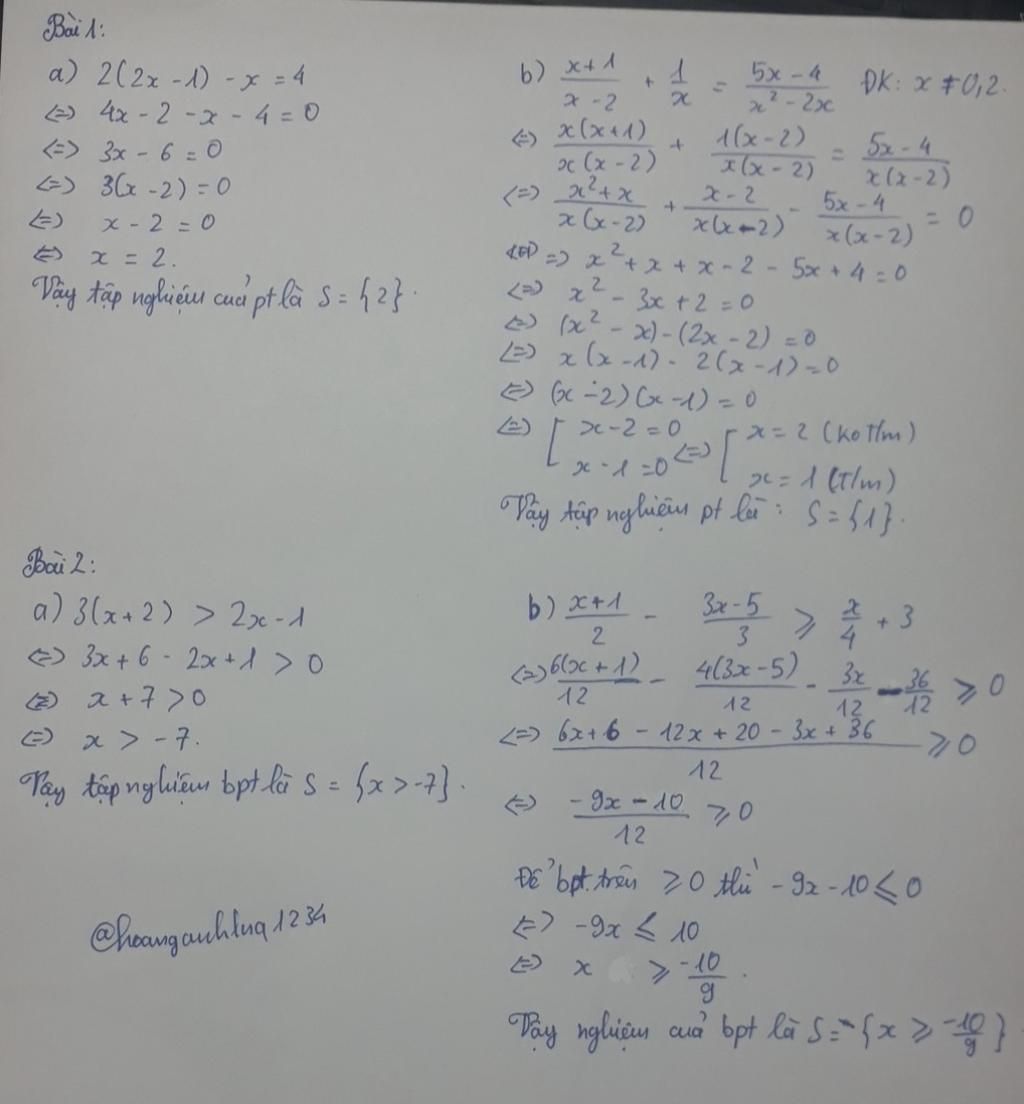 Bài 1:
a) 2(2x - 1) - x = 4
<=> 4x - 2 - x - 4 = 0
<=> 3x - 6 = 0
<=> 3(x - 2) = 0
<=> x - 2 = 0
<=> x = 2.
Vậy tập nghiệm cuả pt là S = {2}.
b) (x+1)/(x-2) + 1/x = (5x-4)/(x² - 2x) ĐK: x ≠ 0,2.
<=> x(x+1)/x(x-2) + 1(x-2)/x(x-2) = (5x-4)/x(x-2)
<=> (x²+x)/x(x-2) + (x-2)/x(x-2) - (5x-4)/x(x-2) = 0
=> x² + x + x - 2 - 5x + 4 = 0
<=> x² - 3x + 2 = 0
<=> (x² - x) - (2x - 2) = 0
<=> x(x-1) - 2(x-1) = 0
<=> (x-2)(x-1) = 0
<=> [ x-2 = 0 <=> [ x = 2 (ko t/m)
x-1 = 0 x = 1 (T/m)
Vậy tập nghiệm pt là: S = {1}.
Bài 2:
a) 3(x+2) > 2x - 1
<=> 3x + 6 - 2x + 1 > 0
<=> x + 7 > 0
<=> x > -7.
Vậy tập nghiệm bpt là S = {x > -7}.
@hoanganhlnq1234
b) (x+1)/2 - (3x-5)/3 ≥ x/4 + 3
<=> 6(x+1)/12 - 4(3x-5)/12 - 3x/12 - 36/12 ≥ 0
<=> (6x+6 - 12x + 20 - 3x + 36)/12 ≥ 0
<=> (-9x - 10)/12 ≥ 0
Để bpt trên ≥ 0 thì -9x - 10 ≤ 0
<=> -9x ≤ 10
<=> x ≥ -10/9.
Vậy nghiệm cuả bpt là S = {x ≥ -10/9}